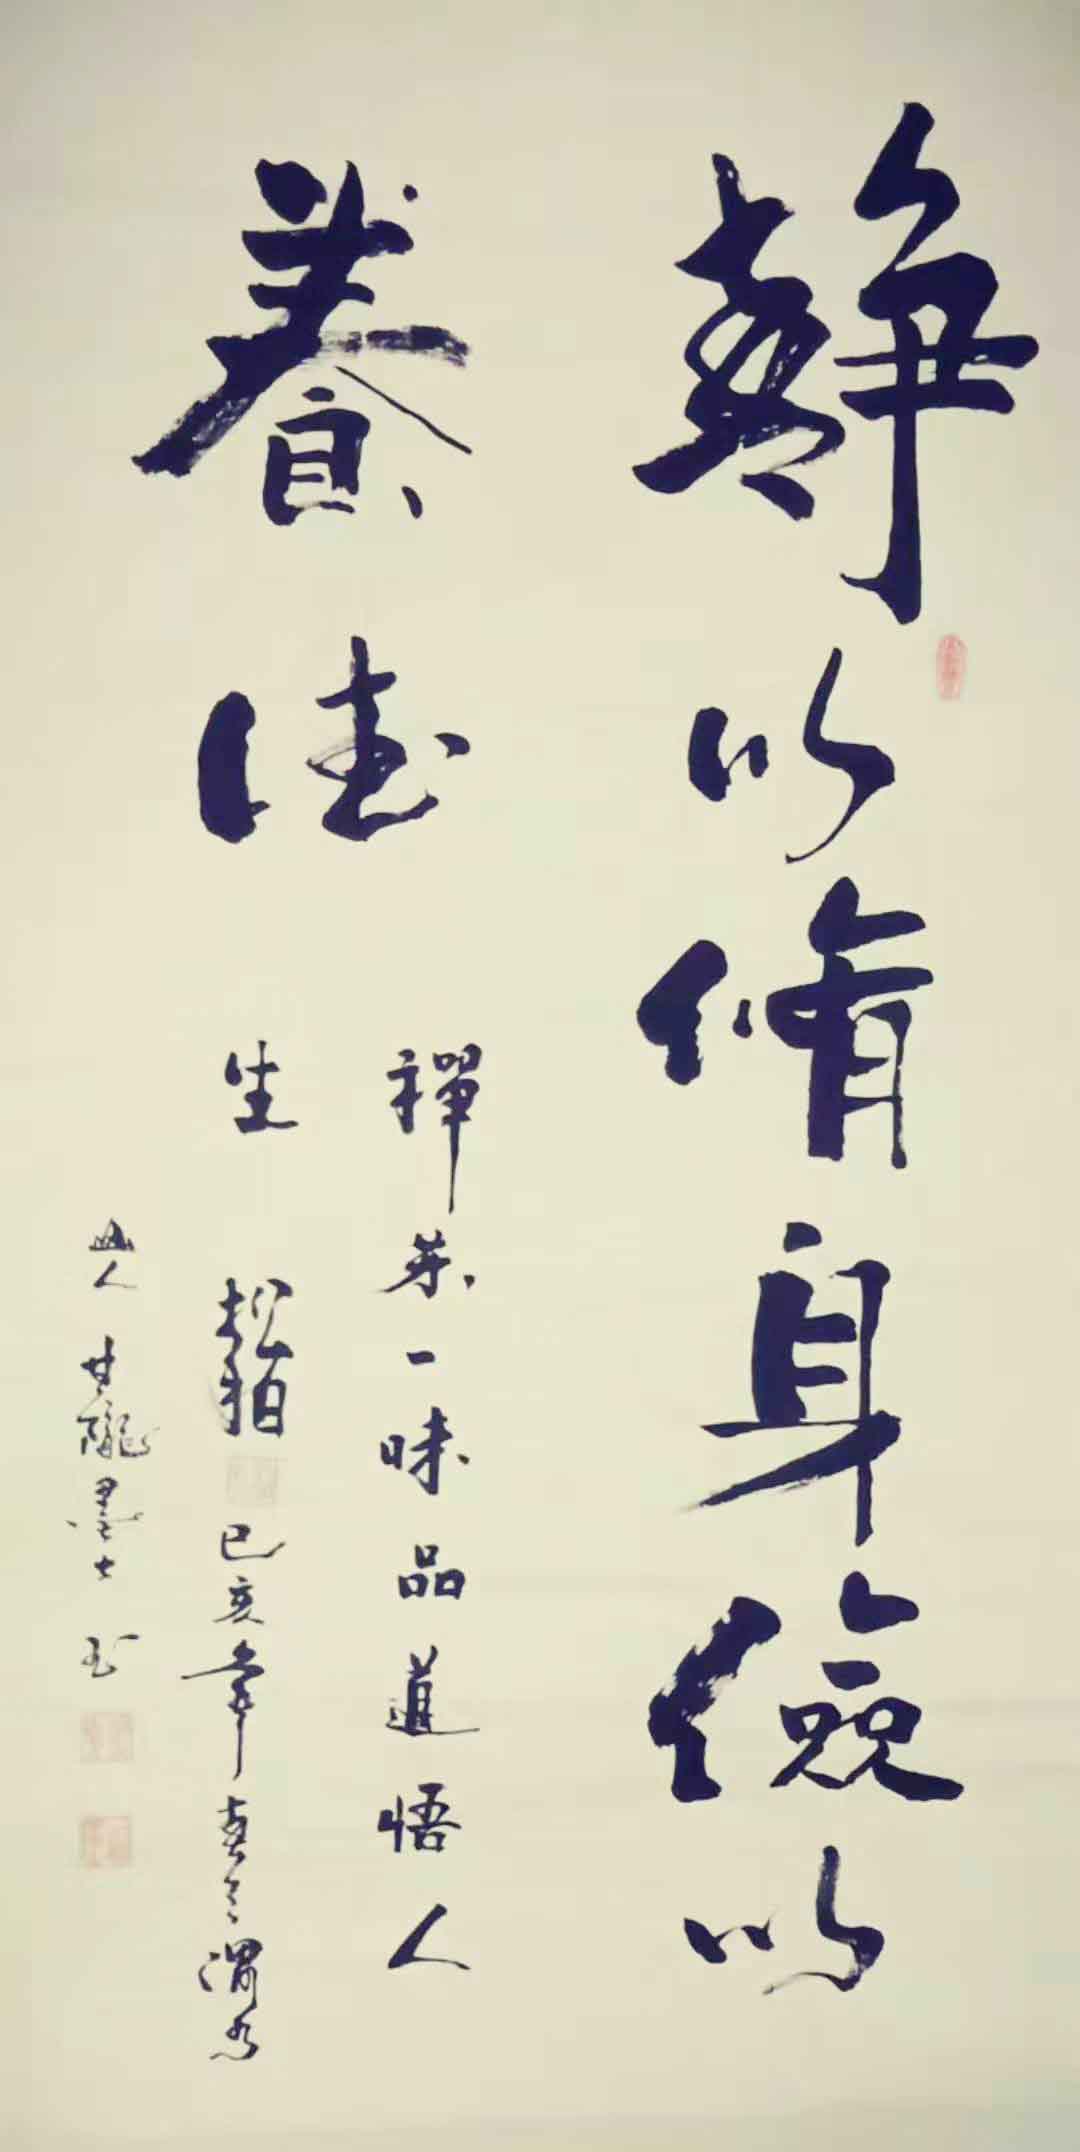 靜以脩身儉以
養德
禪茶一味品道悟人
生 松柏 己亥年春 渭
人 甘隴墨士 书